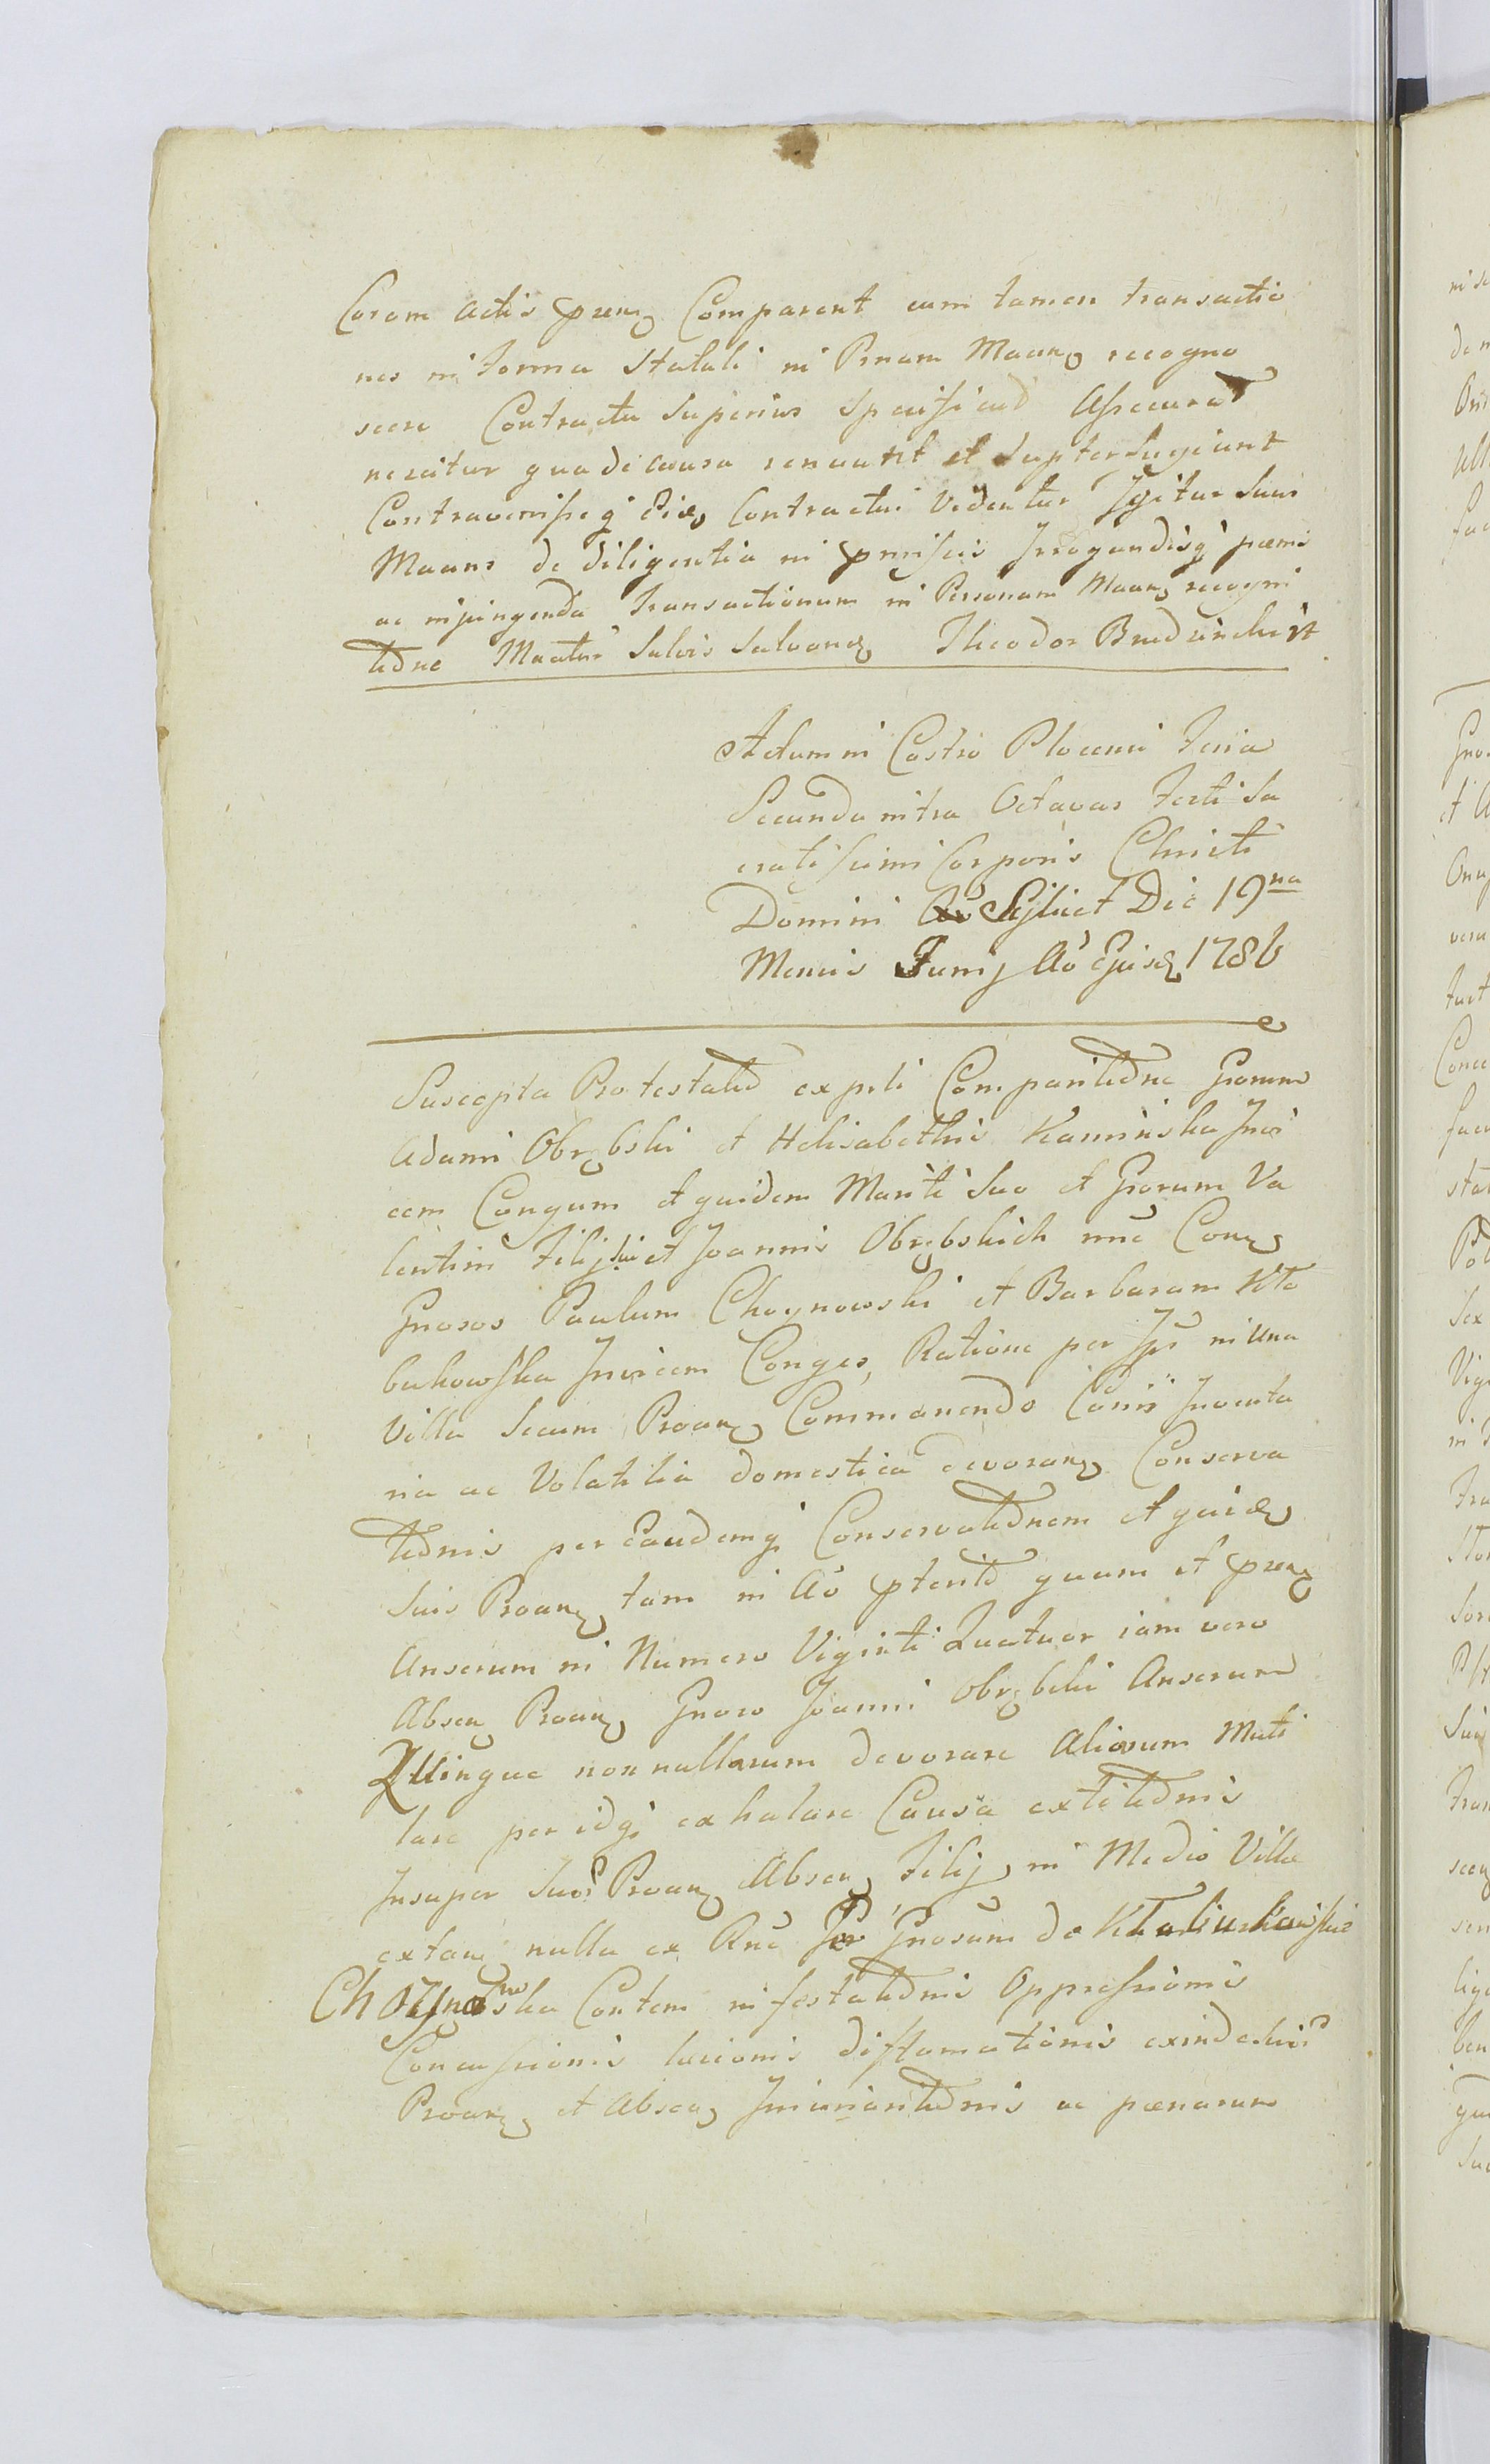 Coram actis praen Comparent cum tamen transactio
nes in forma Statuti in Prnam Maan recogno
scere Contractu Superius Specificat Assecurat
nescitur qua de causa renuunt et Supterfugiunt
Contravenisseq Eid Contractui Videntur Igitur Suus
Maans de diligentia in pmissis Irrogandisq poenis
ac injungenda Transactionum in Personam Maan recogni
tione Maatur Salvis Salvand Theodor
Actum in Castro Plocensi Feria
Secunda intra Octavas Festi Sa
cratissimi Corporis Christi
Domini Scilicet Die 19na
Mensis Junij Ao Ejusd 1786
Suscepta Protestatio ex prti Comparitione Grorum
Adami Obrębski et Helisabethis Kaminska Invi
cem Congum et quidem Mariti Suo et Grorum Va
lentini Filij Sui et Joannis Obrębskich nne Con
Gnosos Paulum Choynowski et Barbaram Kta
bukowska Invicem Conges, Ratione per Ips in Una
Villa Secum Proan Commanendo Canis Inventa
ria ac Volatilia domestica devoran Conserva
tionis per Eandemq Conservationem et quid
Suis Proan tam in Ao pterito quam et praen
Anserum in Numero Viginti Quatuor iam vero
Absen Proan Gnoso Joanni Obrębski Anserum
Quinque nonnullarum devorare Aliarum Muti
lare per idq exhalare Causa extitionis
Insuper Suos Proan Absen Filij in Medio Villae
extan nulla ex Rne Per Gnosum de
Choynowska Contem infestationis Oppressionis
Concussionis laesionis diffamationis exinde Suis
Proan et Absen Iniuriaritionis ac poenarum